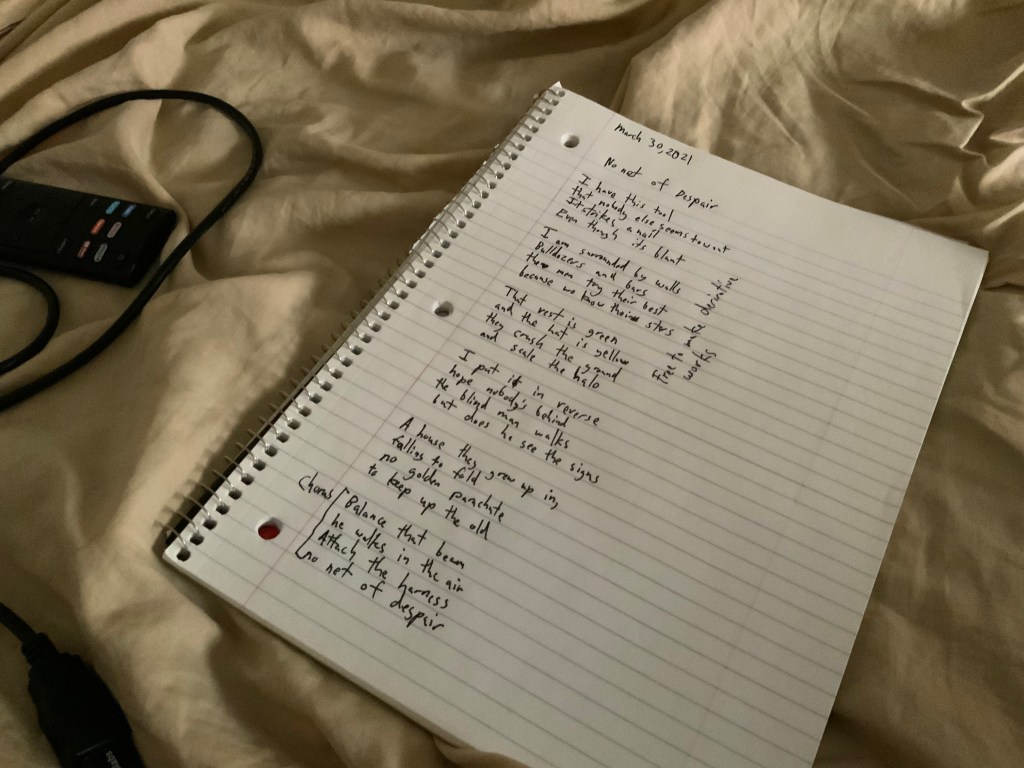 March 30, 2021
No net of Despair
I have this tool
that nobody else seems to want
It strikes a nail
Even though its blunt
I am surrounded by walls
Bulldozers and bars
the men try their best
because we know their stars
That vest is green
and the hat is yellow
they crush the ground
and scale the halo
I put it in reverse
hope nobody's behind
the blind man walks
but does he see the signs
A house they grew up in,
failing to fold
no golden parachute
to keep up the old
Chorus
Balance that beam
he walks in the air
Attach the harness
no net of despair
free to
works of